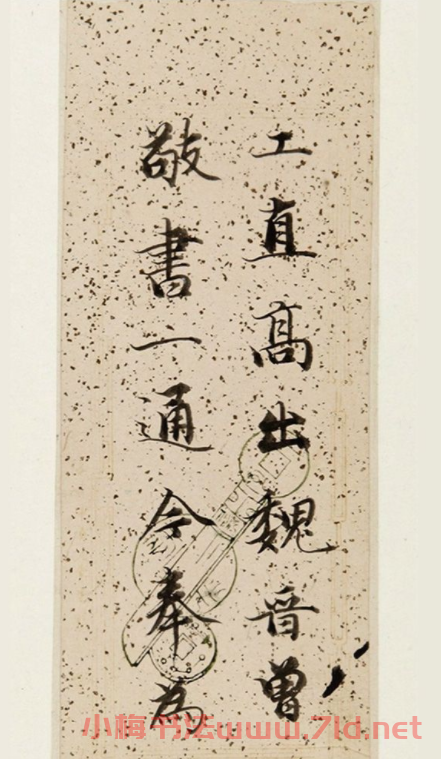 工直高出魏晋曾
敬書一通今奉為
小梅书法www.7ld.net